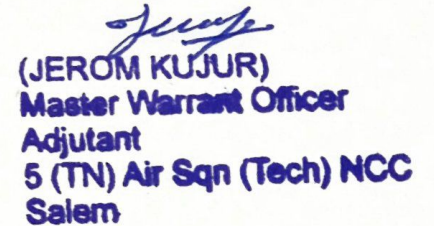 (JEROM KUJUR)
Master Warrant Officer
Adjutant
5 (TN) Air Sqn (Tech) NCC
Salem